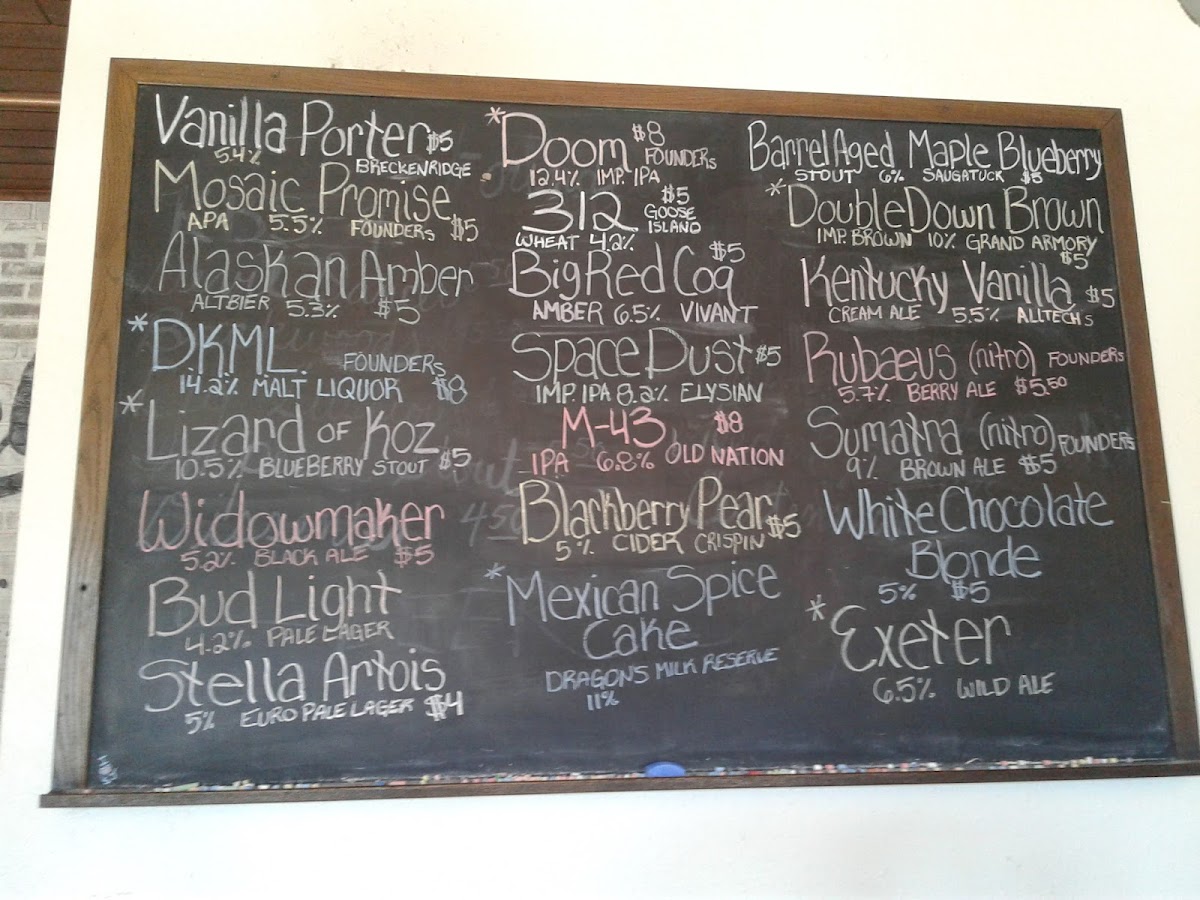 Vanilla Porter $5
5.4% BRECKENRIDGE
Mosaic Promise
APA 5.5% FOUNDERS $5
Alaskan Amber
ALTBIER 5.3% $5
* DKML. FOUNDERS
14.2% MALT LIQUOR $8
* Lizard OF Koz
10.5% BLUEBERRY STOUT $5
Widowmaker
5.2% BLACK ALE $5
Bud Light
4.2% PALE LAGER
Stella Artois
5% EURO PALE LAGER $4
* Doom $8
FOUNDERS
12.4% IMP. IPA
312 $5
GOOSE
ISLAND
WHEAT 4.2%
Big Red Coq $5
AMBER 6.5% VIVANT
Space Dust $5
IMP. IPA 8.2% ELYSIAN
M-43 $8
IPA 6.8% OLD NATION
Blackberry Pear $5
5% CIDER CRISPIN
* Mexican Spice
Cake
DRAGONS MILK RESERVE
11%
Barrel Aged Maple Blueberry
STOUT 6% SAUGATUCK $5
* Double Down Brown
IMP. BROWN 10% GRAND ARMORY
$5
Kentucky Vanilla $5
CREAM ALE 5.5% ALLTECHS
Rubaeus (nitro) FOUNDERS
5.7% BERRY ALE $5.50
Sumatra (nitro) FOUNDERS
9% BROWN ALE $5
White Chocolate
Blonde
5% $5
* Exeter
6.5% WILD ALE